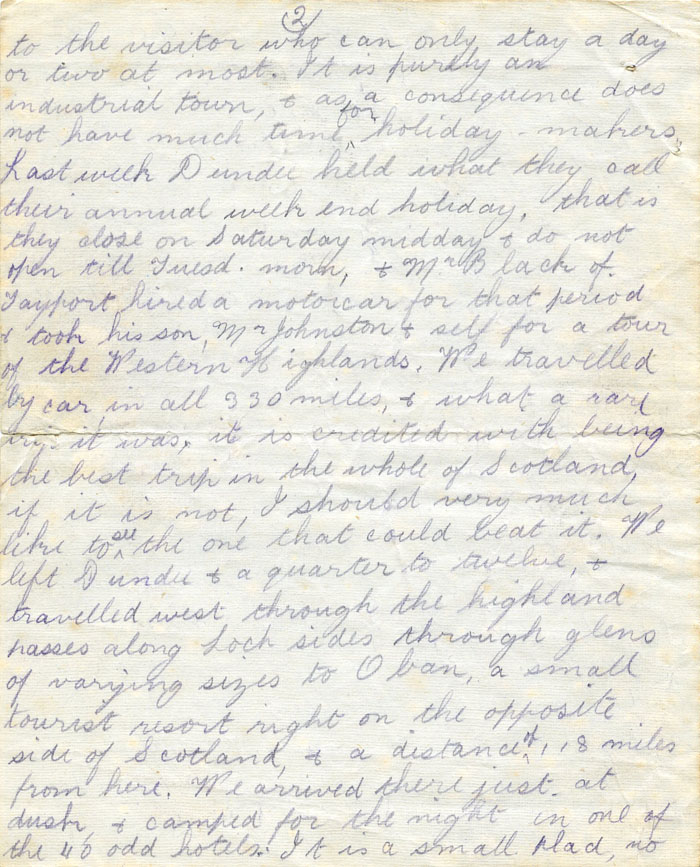 (2)
to the visitor who can only stay a day
or two at most. It is purely an
industrial town, & as a consequence does
not have much time for holiday-makers,
Last week Dundee held what they call
their annual week end holiday, that is
they close on Saturday midday & do not
open till Tuesd. morn, & Mr Black of
Tayport, hired a motorcar for that period
& took his son, Mr Johnston & self for a tour
of the Western Highlands. We travelled
by car, in all 330 miles, & what a rare
trip it was, it is credited with being
the best trip in the whole of Scotland,
if it is not, I should very much
like to see the one that could beat it. We
left Dundee & a quarter to twelve, &
travelled west through the highland
passes along Loch sides through glens
of varying sizes to Oban, a small
tourist resort right on the opposite
side of Scotland, & a distance of 118 miles
from here. We arrived there just at
dusk, & camped for the night in one of
the 40 odd hotels. It is a small, no